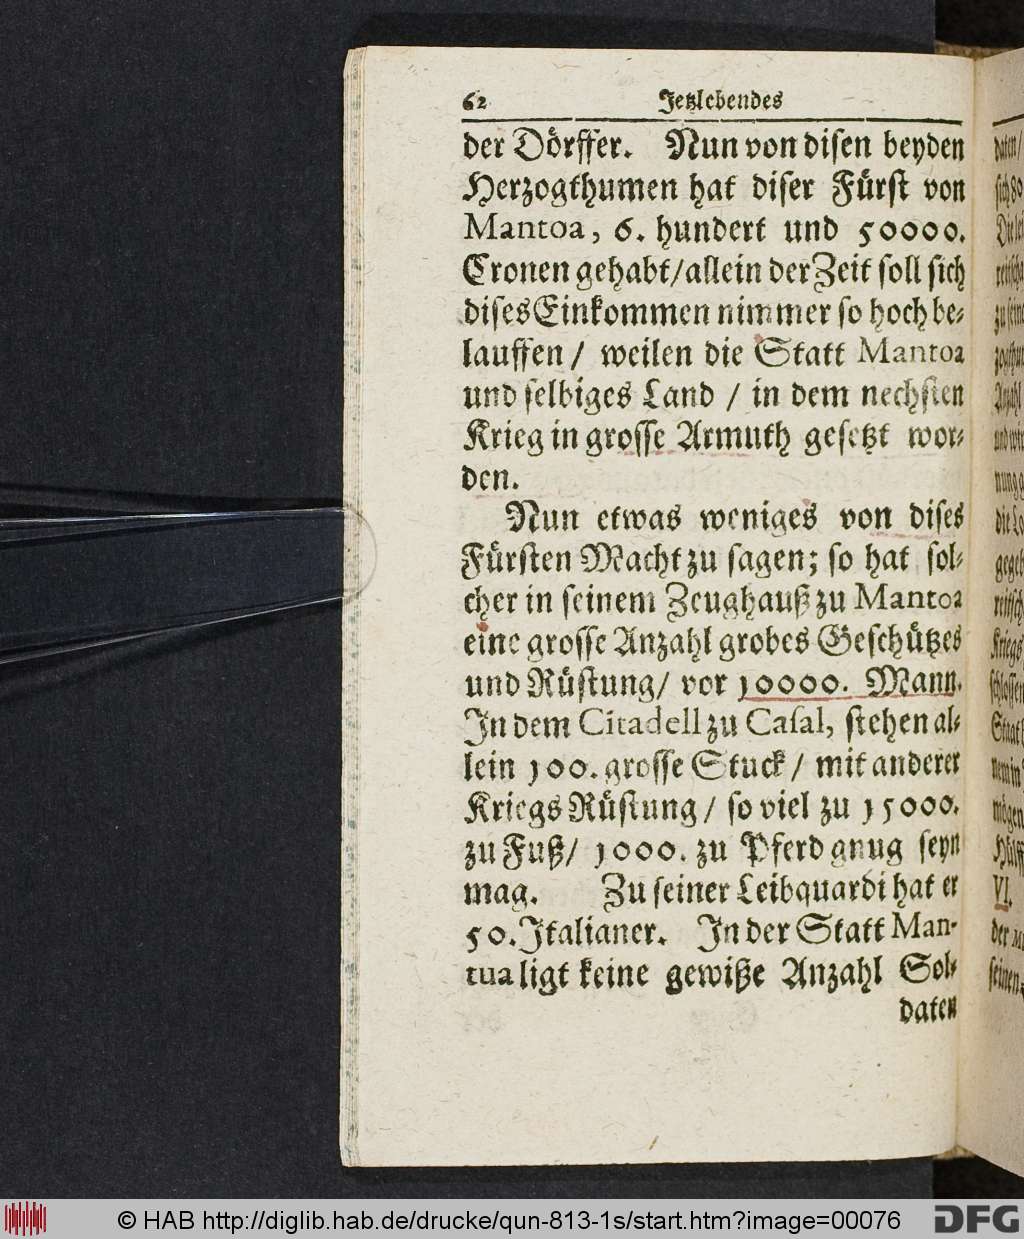 62 Jetzlebendes
der Dörffer. Nun von disen beyden
Herzogthumen hat diser Fürst von
Mantoa, 6. hundert und 50000.
Cronen gehabt/allein der Zeit soll sich
dises Einkommen nimmer so hoch be-
lauffen / weilen die Statt Mantoa
und selbiges Land / in dem nechsten
Krieg in grosse Armuth gesetzt wor-
den.
Nun etwas weniges von dises
Fürsten Macht zu sagen; so hat sol-
cher in seinem Zeughauß zu Mantoa
eine grosse Anzahl grobes Geschützes
und Rüstung/ vor 10000. Mann.
In dem Citadell zu Casal, stehen al-
lein 100. grosse Stuck / mit anderer
Kriegs Rüstung / so viel zu 15000.
zu Fuß/ 1000. zu Pferd gnug seyn
mag. Zu seiner Leibquardi hat er
50. Italianer. In der Statt Man-
tua ligt keine gewiße Anzahl Sol-
daten
VI.
der
© HAB http://diglib.hab.de/drucke/qun-813-1s/start.htm?image=00076
DFG